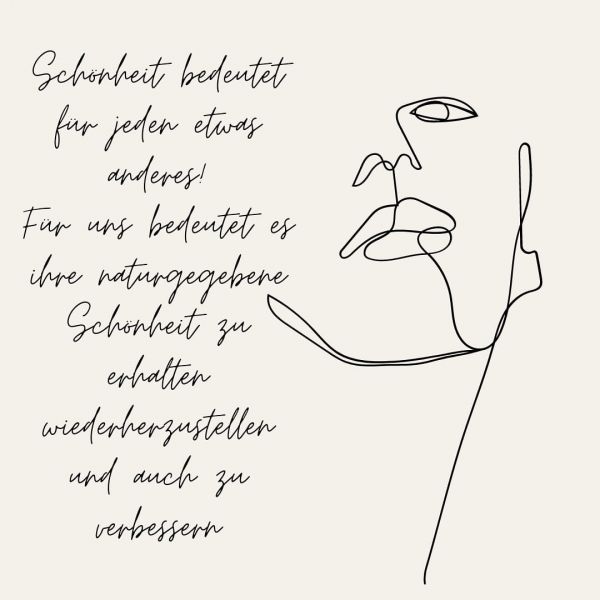 Schönheit bedeutet
für jeden etwas
anderes!
Für uns bedeutet es
ihre naturgegebene
Schönheit zu
erhalten
wiederherzustellen
und auch zu
verbessern